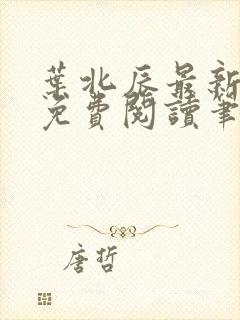 葉北辰最新
免費閱讀筆
唐哲